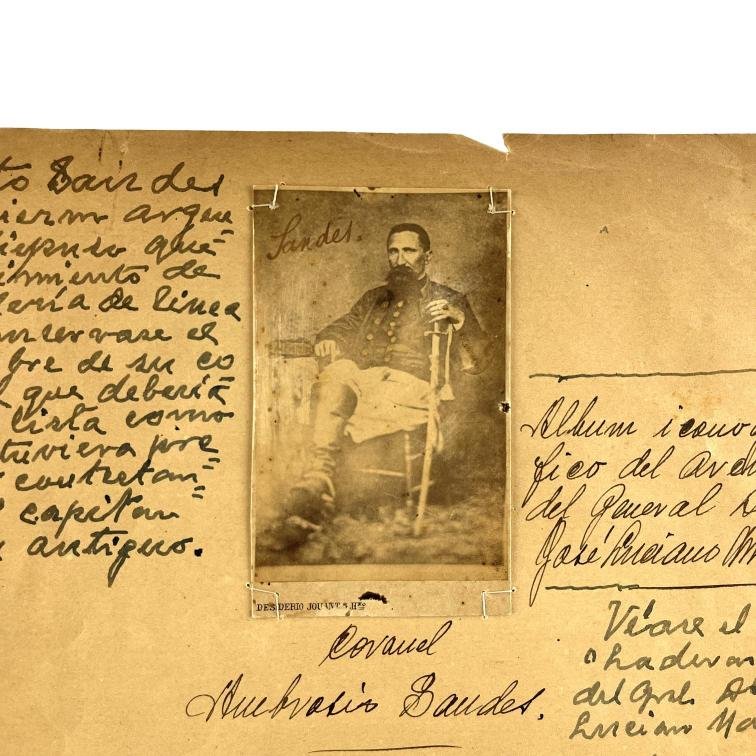 to Sandes
ierno argen
dispuso que
imiento de
lería de linea
onservase el
bre de su co
l que debería
lista como
tuviera pre
contestan=
capitan
antiguo.
Sandes.
DESIDERIO JOUANT Y Hno
Coronel
Ambrosio Sandes.
Album iconog
fico del arch
del General D
José Luciano
Véase el
del Gral.
Luciano